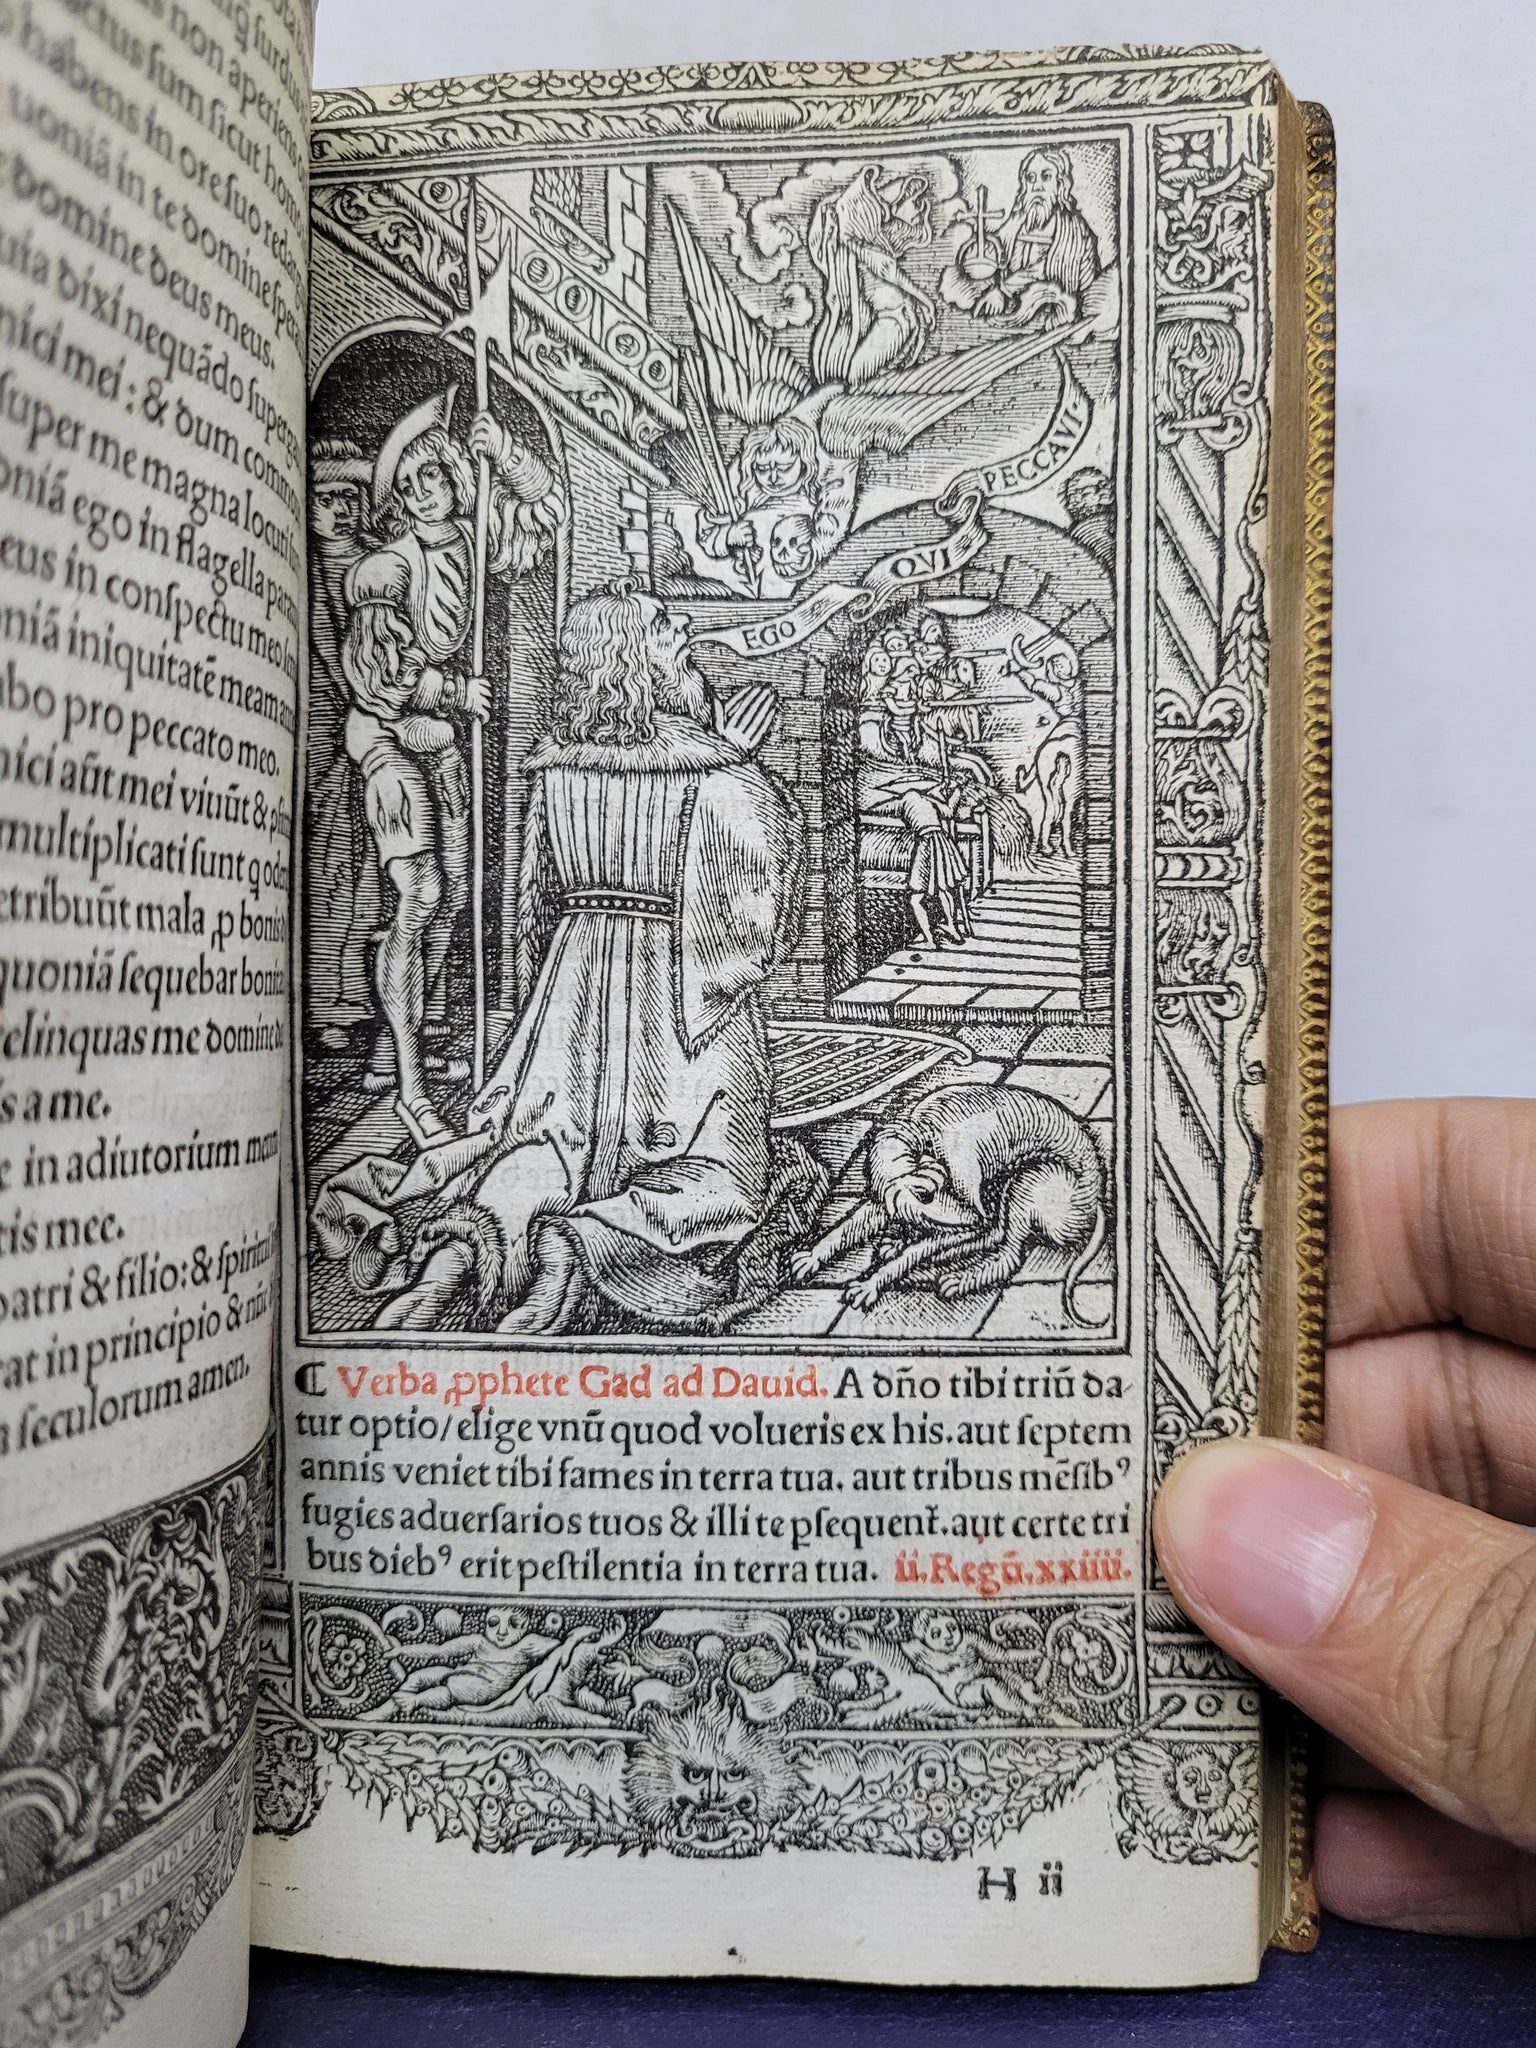 non aperiens
sum sicut homo
habens in ore suo redar
uoniā in te domine spera
domine deus meus.
uia dixi nequādo superga
nici mei: & dum commo
super me magna locuti
oniā ego in flagella para
eus in conspectu meo sem
oniā iniquitatē meam
abo pro peccato meo.
nici aūt mei viuūt &
multiplicati sunt q oder
etribuūt mala ꝓ bonis
quoniā sequebar bonita
relinquas me domine de
s a me.
e in adiutorium meum
tis mee.
patri & filio: & spiritui
rat in principio & nūc
seculorum amen.
EGO QVI PECCAVI.
¶ Verba ꝓphete Gad ad Dauid. A dño tibi triū da-
tur optio/elige vnū quod volueris ex his. aut septem
annis veniet tibi fames in terra tua. aut tribus mēsibꝰ
fugies aduersarios tuos & illi te ꝑsequent̃. aut certe tri
bus diebꝰ erit pestilentia in terra tua. ii. Regū. xxiiii.
H ii